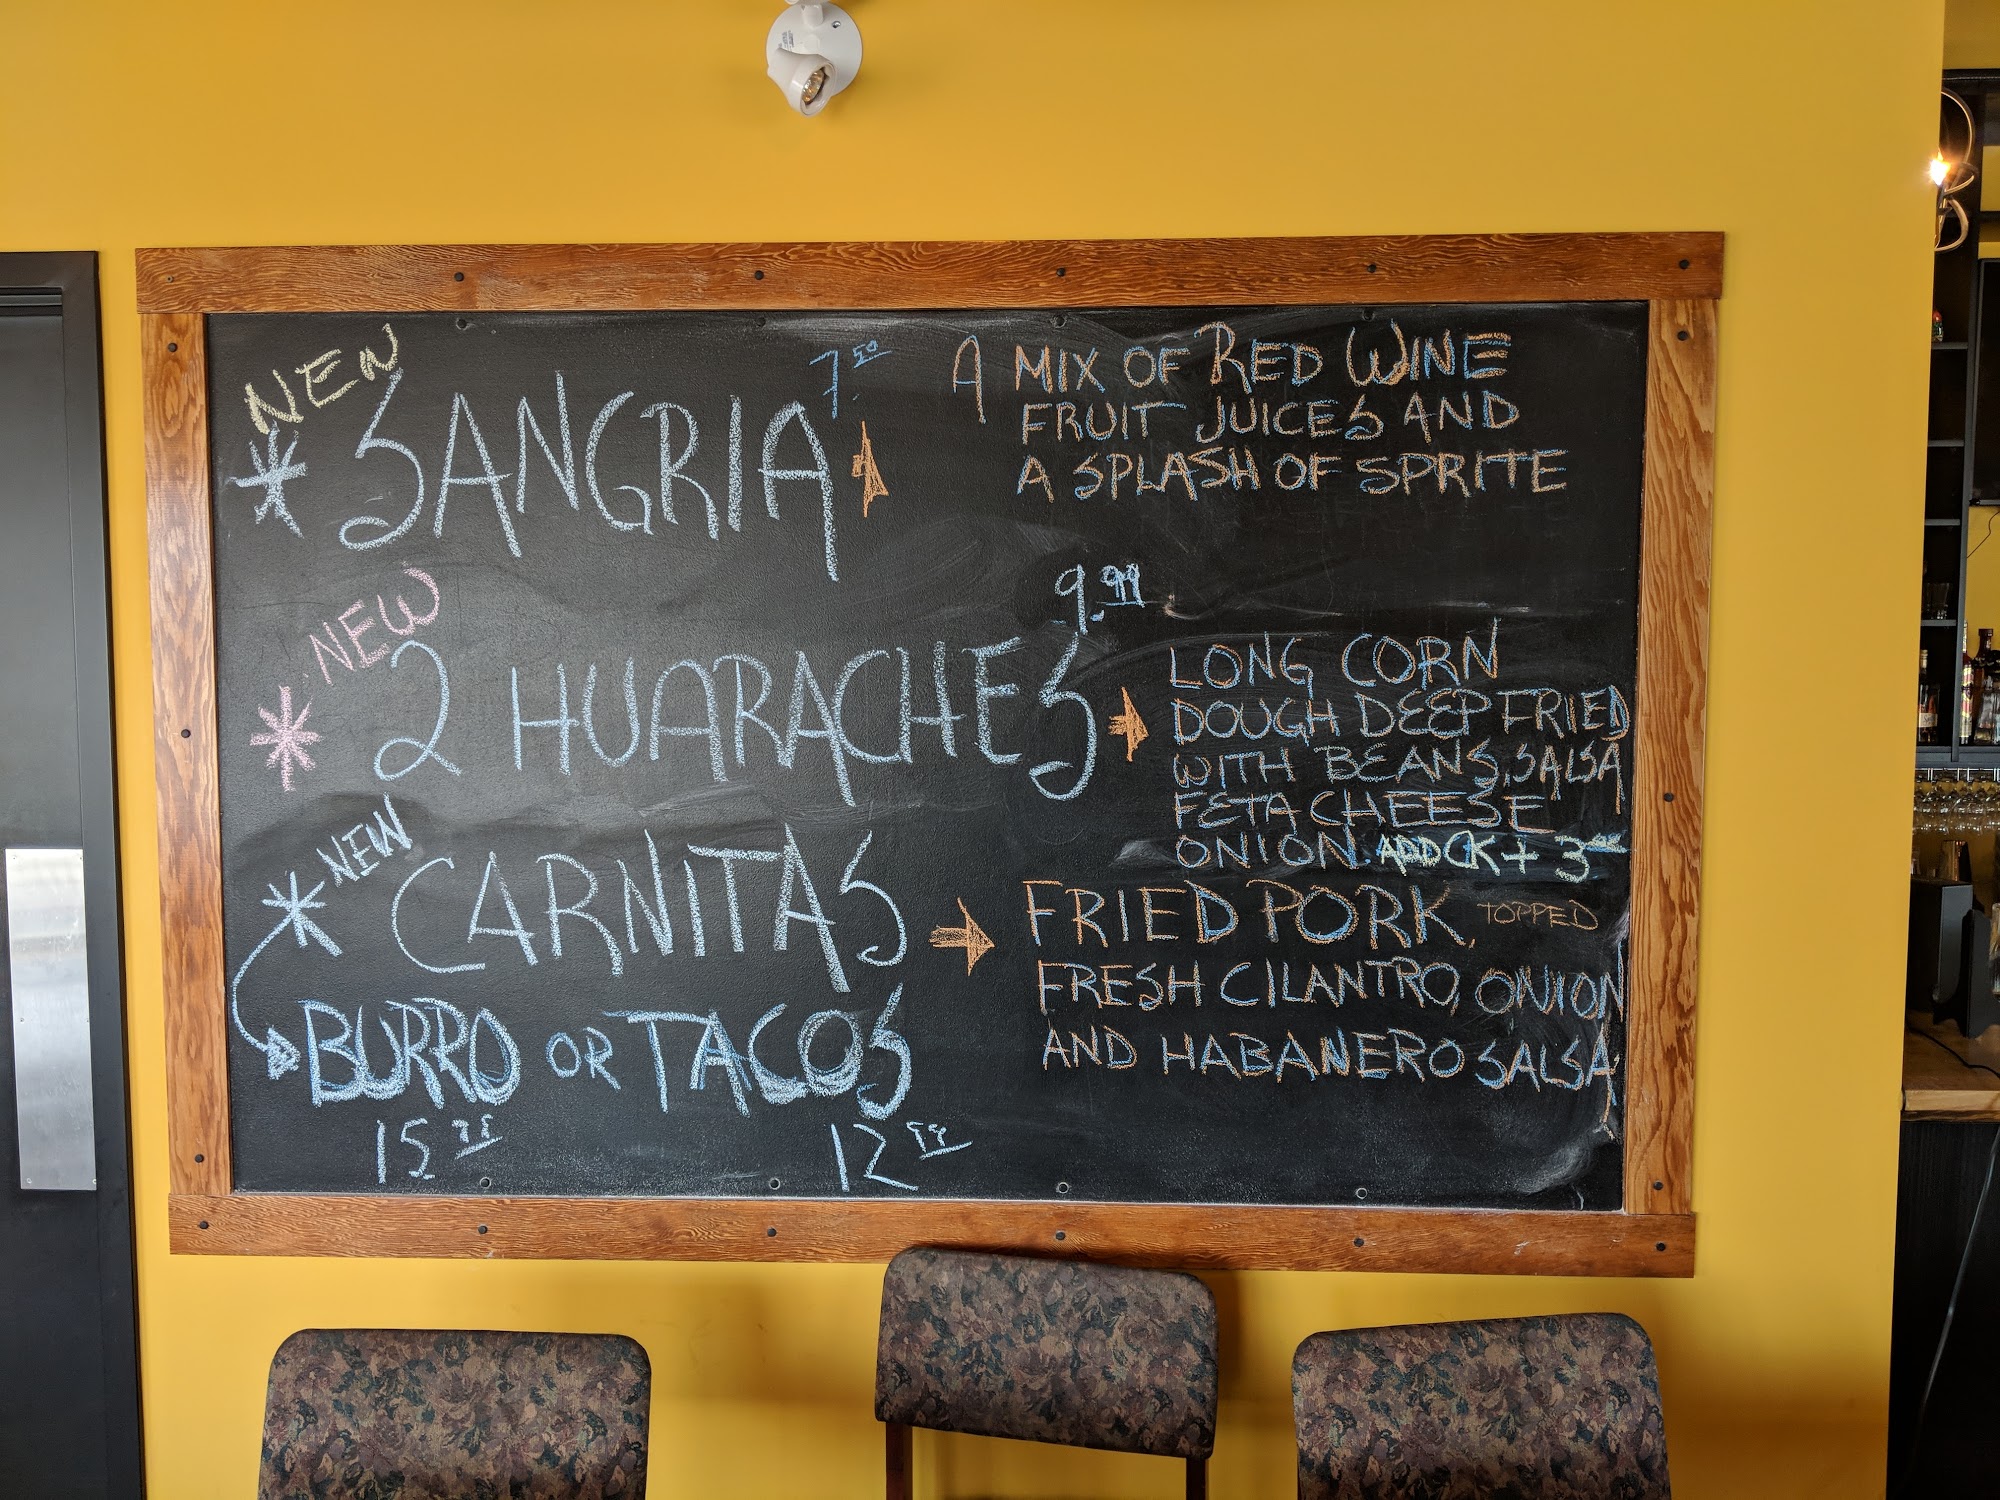 NEW
* SANGRIA 7.50
A MIX OF RED WINE
FRUIT JUICES AND
A SPLASH OF SPRITE
NEW
* 2 HUARACHES 9.99
LONG CORN
DOUGH DEEP FRIED
WITH BEANS, SALSA
FETA CHEESE
ONION. ADD CK + 3.00
NEW
* CARNITAS
BURRO OR TACOS
15.99 12.99
FRIED PORK, TOPPED
FRESH CILANTRO, ONION
AND HABANERO SALSA